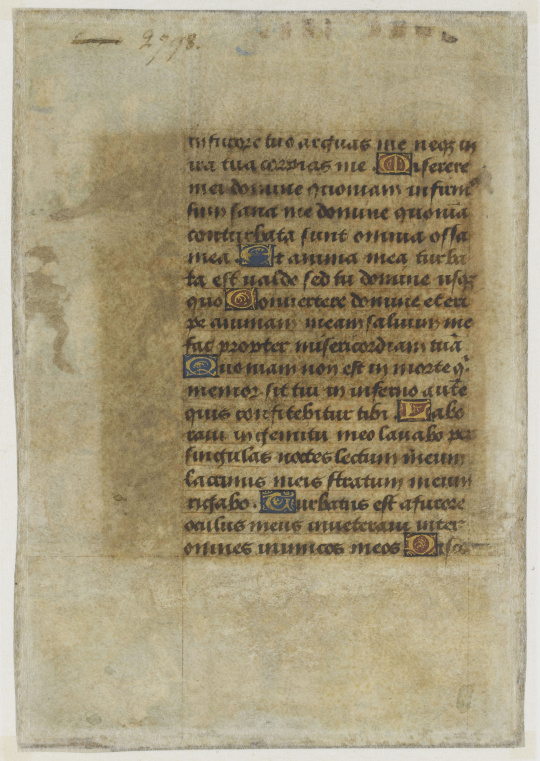 2598.
in furore tuo arguas me neqz in
ira tua corripias me. Miserere
mei domine quoniam infirmus
sum sana me domine quoniā
conturbata sunt omnia ossa
mea. Et anima mea turba
ta est valde sed tu domine usqz
quo Convertere domine et eri
pe animam meam salvum me
fac propter misericordiam tuā
Quoniam non est in morte q̄
memor sit tui in inferno autē
quis confitebitur tibi. Labo
ravi in gemitu meo lavabo per
singulas noctes lectum meum
lacrimis meis stratum meum
rigabo. Turbatus est a furore
oculus meus inveteravi inter
omnes inimicos meos Disce